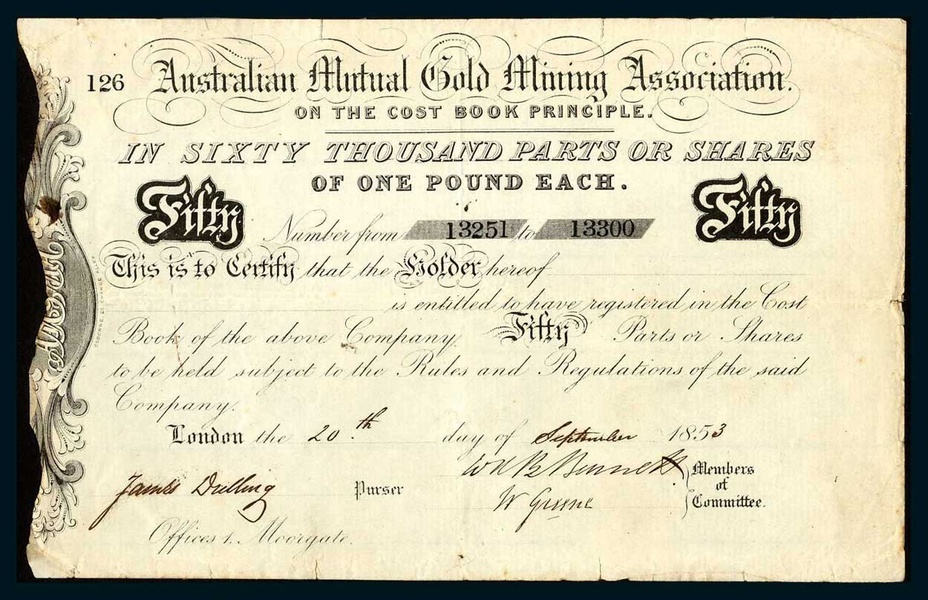 126 Australian Mutual Gold Mining Association.
ON THE COST BOOK PRINCIPLE.
IN SIXTY THOUSAND PARTS OR SHARES
OF ONE POUND EACH.
Fifty Fifty
Number from 13251 to 13300
This is to Certify that the Holder hereof
is entitled to have registered in the Cost
Book of the above Company, Fifty Parts or Shares
to be held subject to the Rules and Regulations of the said
Company.
London the 20th day of September 1853
W H B Bennett Members
James Dulling Purser of
W Greene Committee.
Offices 1, Moorgate.